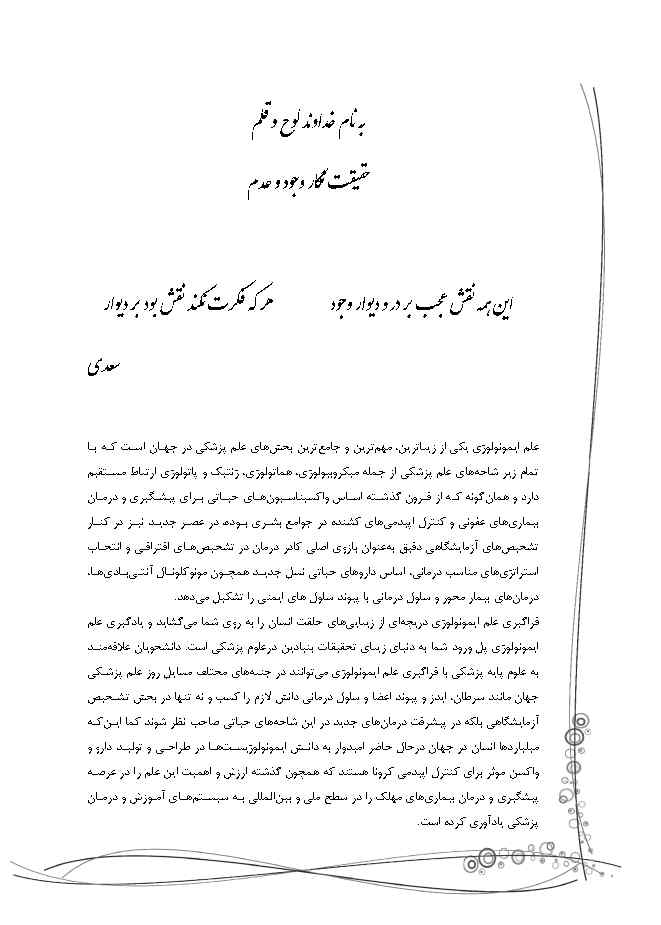 به نام خداوند لوح و قلم
حقیقت نگار وجود و عدم
این همه نقش عجب بر در و دیوار وجود هر که فکرت نکند نقش بود بر دیوار
سعدی
علم ایمونولوژی یکی از زیباترین، مهم‌ترین و جامع‌ترین بخش‌های علم پزشکی در جهان است که با
تمام زیر شاخه‌های علم پزشکی از جمله میکروبیولوژی، هماتولوژی، ژنتیک و پاتولوژی ارتباط مستقیم
دارد و همان‌گونه که از قرون گذشته اساس واکسیناسیون‌های حیاتی برای پیشگیری و درمان
بیماری‌های عفونی و کنترل اپیدمی‌های کشنده در جوامع بشری بوده، در عصر جدید نیز در کنار
تشخیص‌های آزمایشگاهی دقیق به‌عنوان بازوی اصلی کادر درمان در تشخیص‌های افتراقی و انتخاب
استراتژی‌های مناسب درمانی، اساس داروهای حیاتی نسل جدید همچون مونوکلونال آنتی‌بادی‌ها،
درمان‌های بیمار محور و سلول درمانی یا پیوند سلول های ایمنی را تشکیل می‌دهد.
فراگیری علم ایمونولوژی دریچه‌ای از زیبایی‌های خلقت انسان را به روی شما می‌گشاید و یادگیری علم
ایمونولوژی پل ورود شما به دنیای زیبای تحقیقات بنیادین درعلوم پزشکی است. دانشجویان علاقه‌مند
به علوم پایه پزشکی با فراگیری علم ایمونولوژی می‌توانند در جنبه‌های مختلف مسایل روز علم پزشکی
جهان مانند سرطان، ایدز و پیوند اعضا و سلول درمانی دانش لازم را کسب و نه تنها در بخش تشخیص
آزمایشگاهی بلکه در پیشرفت درمان‌های جدید در این شاخه‌های حیاتی صاحب نظر شوند کما این‌که
میلیاردها انسان در جهان درحال حاضر امیدوار به دانش ایمونولوژیست‌ها در طراحی و تولید دارو و
واکسن موثر برای کنترل اپیدمی کرونا هستند که همچون گذشته ارزش و اهمیت این علم را در عرصه
پیشگیری و درمان بیماری‌های مهلک را در سطح ملی و بین‌المللی به سیستم‌های آموزش و درمان
پزشکی یادآوری کرده است.